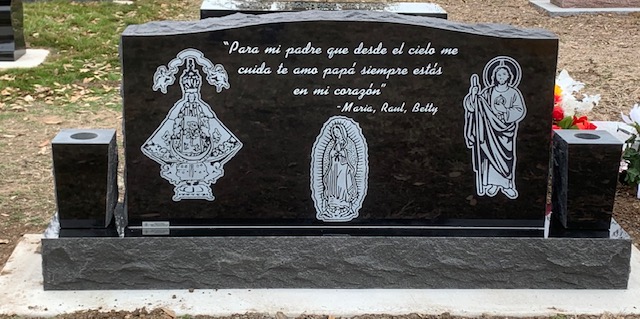 "Para mi padre que desde el cielo me
cuida te amo papá siempre estás
en mi corazón"
-Maria, Raul, Betty